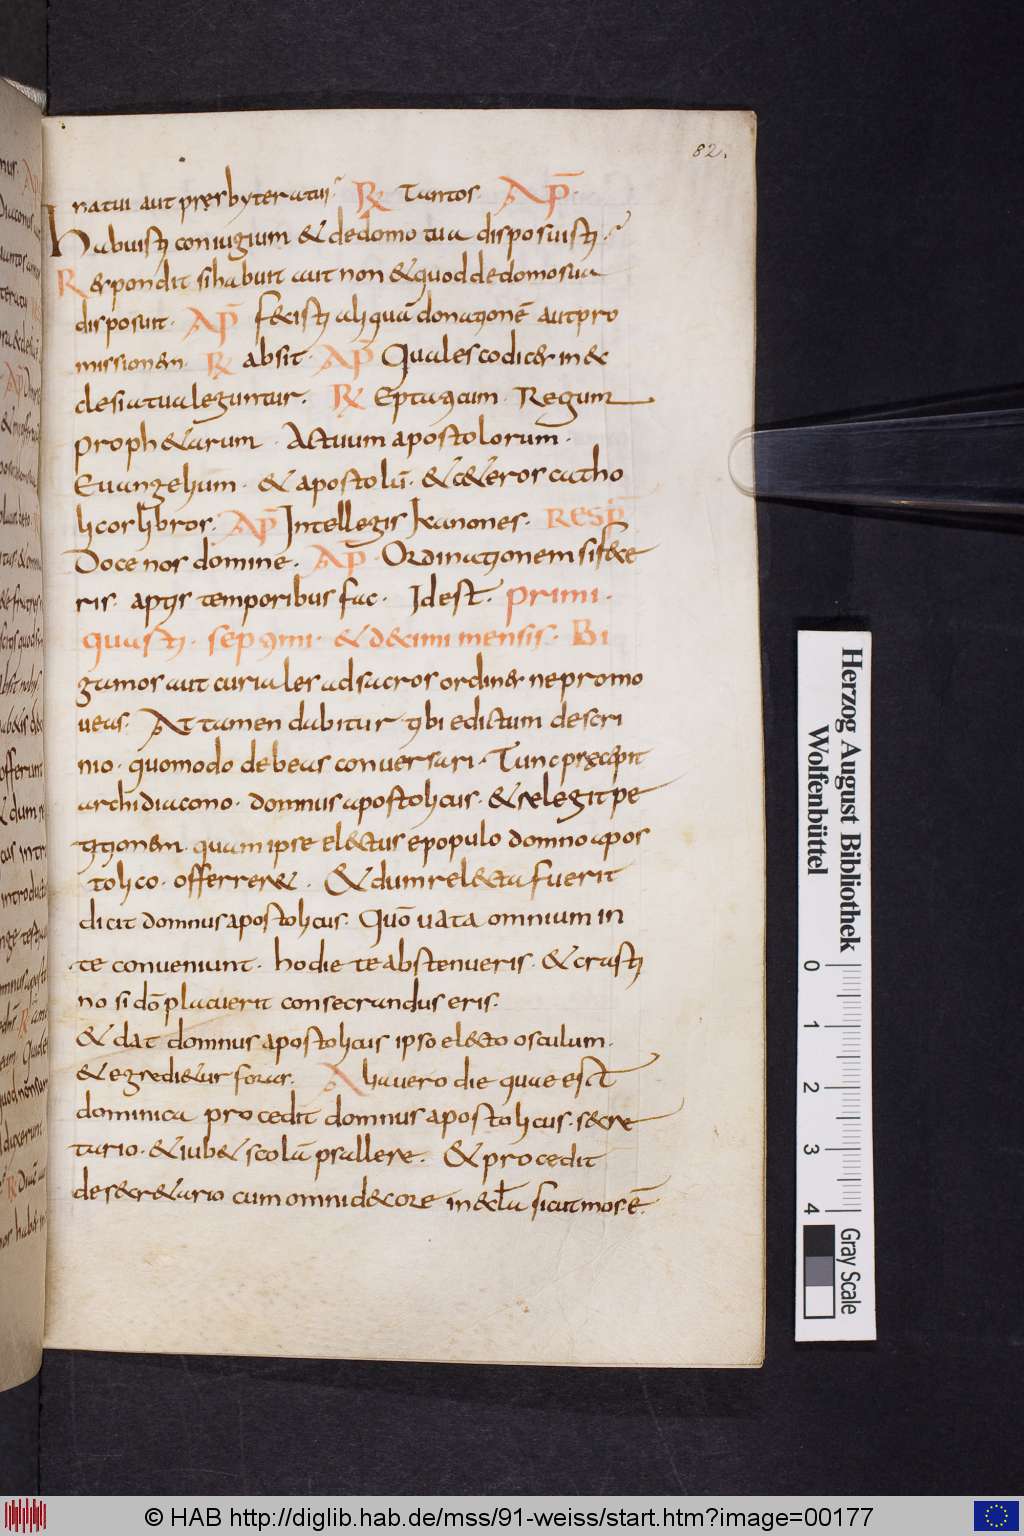 82.
natui aut presbyteratui? R Tantos. AP̄.
Habuisti coniugium & de domo tua disposuisti?
R& spondit si habuit aut non & quod de domo sua
disposuit. AP̄ f&cisti aliquā donationē aut pro
missionem. R absit. AP̄ Quales codices in &
clesia tua leguntur. R Eptaticum. Regum
proph&arum. Actuum apostolorum.
Euangelium. & apostolū. & c&eros catho
licos libros. AP̄ Intellegis kanones. RESP̄
Doce nos domine. AP̄. Ordinationem si fece
ris. aptis temporibus fac. Idest. primi.
quarti. septimi. & decimi mensis. Bi
gamos aut curiales ad sacros ordines ne promo
ueas. At tamen dabitur tibi edictum de scri
nio. quomodo debeas conuersari. Tunc pręcepit
archidiacono. domnus apostolicus. & relegit pe
titionem. quam ipse el&ctus e populo domno apos
tolico. offerrer&. & dum rel&cta fuerit
dicit domnus apostolicus. Quō uata omnium in
te conueniunt. hodie te abstenueris. & crasti
no si dō placuerit consecrandus eris.
& dat domnus apostolicus ipso el&cto osculum.
& egredi&ur foras. Alia uero die quae est
dominica procedit domnus apostolicus. secre
tario. & iub& scolā psallere. & procedit
de secr&ario cum omni decore in eclā sicut mos ē.
Herzog August Bibliothek
Wolfenbüttel
0 1 2 3 4
Gray Scale
© HAB http://diglib.hab.de/mss/91-weiss/start.htm?image=00177